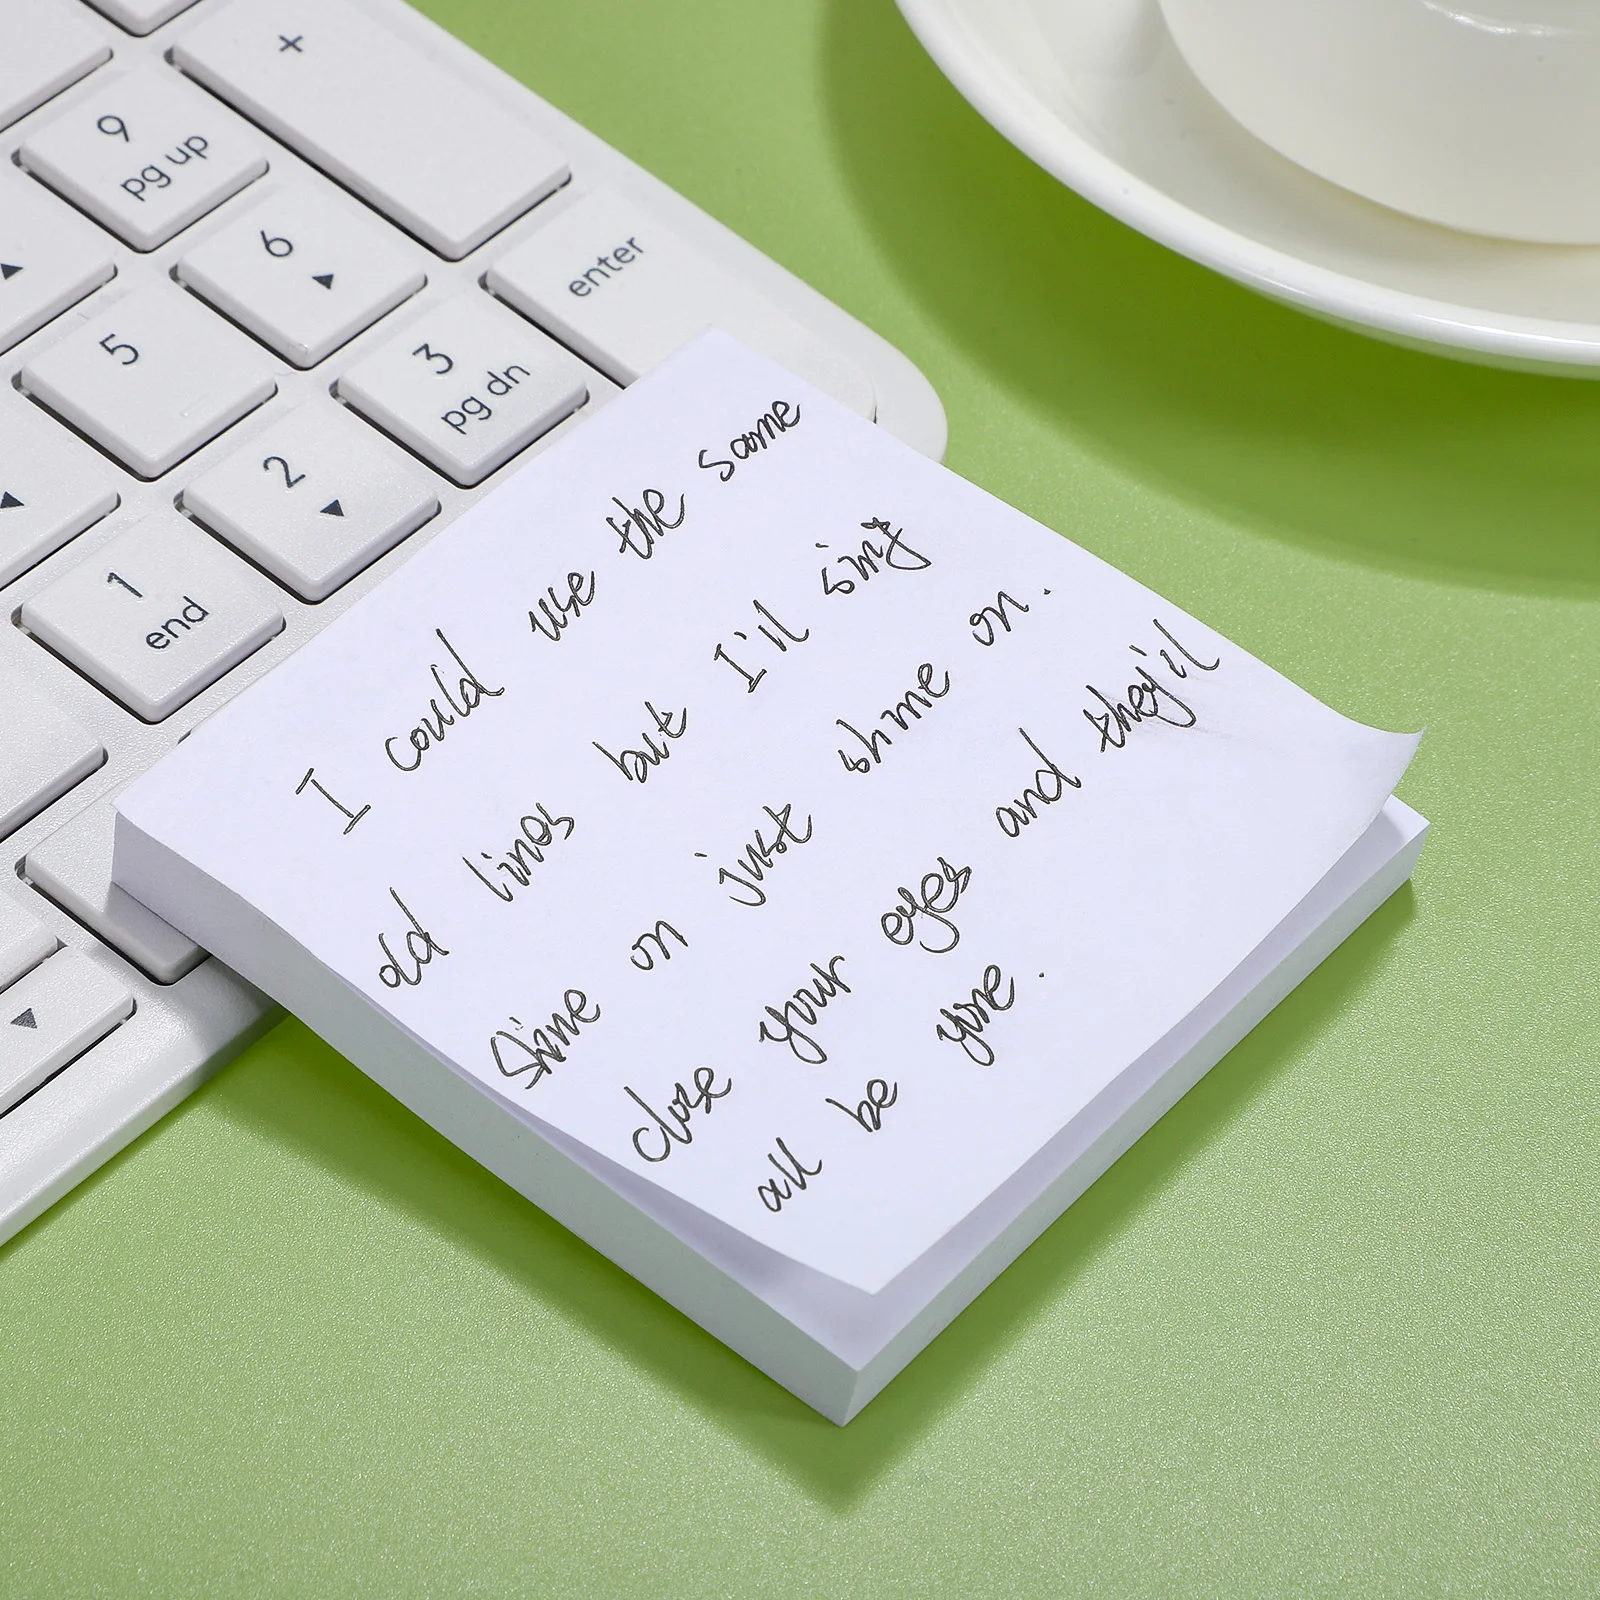 +
9
pg up
6
enter
5
3
pg dn
2
1
end
I could use the same
old lines but I'll sing
Shine on just shine on.
close your eyes and they'll
all be gone.